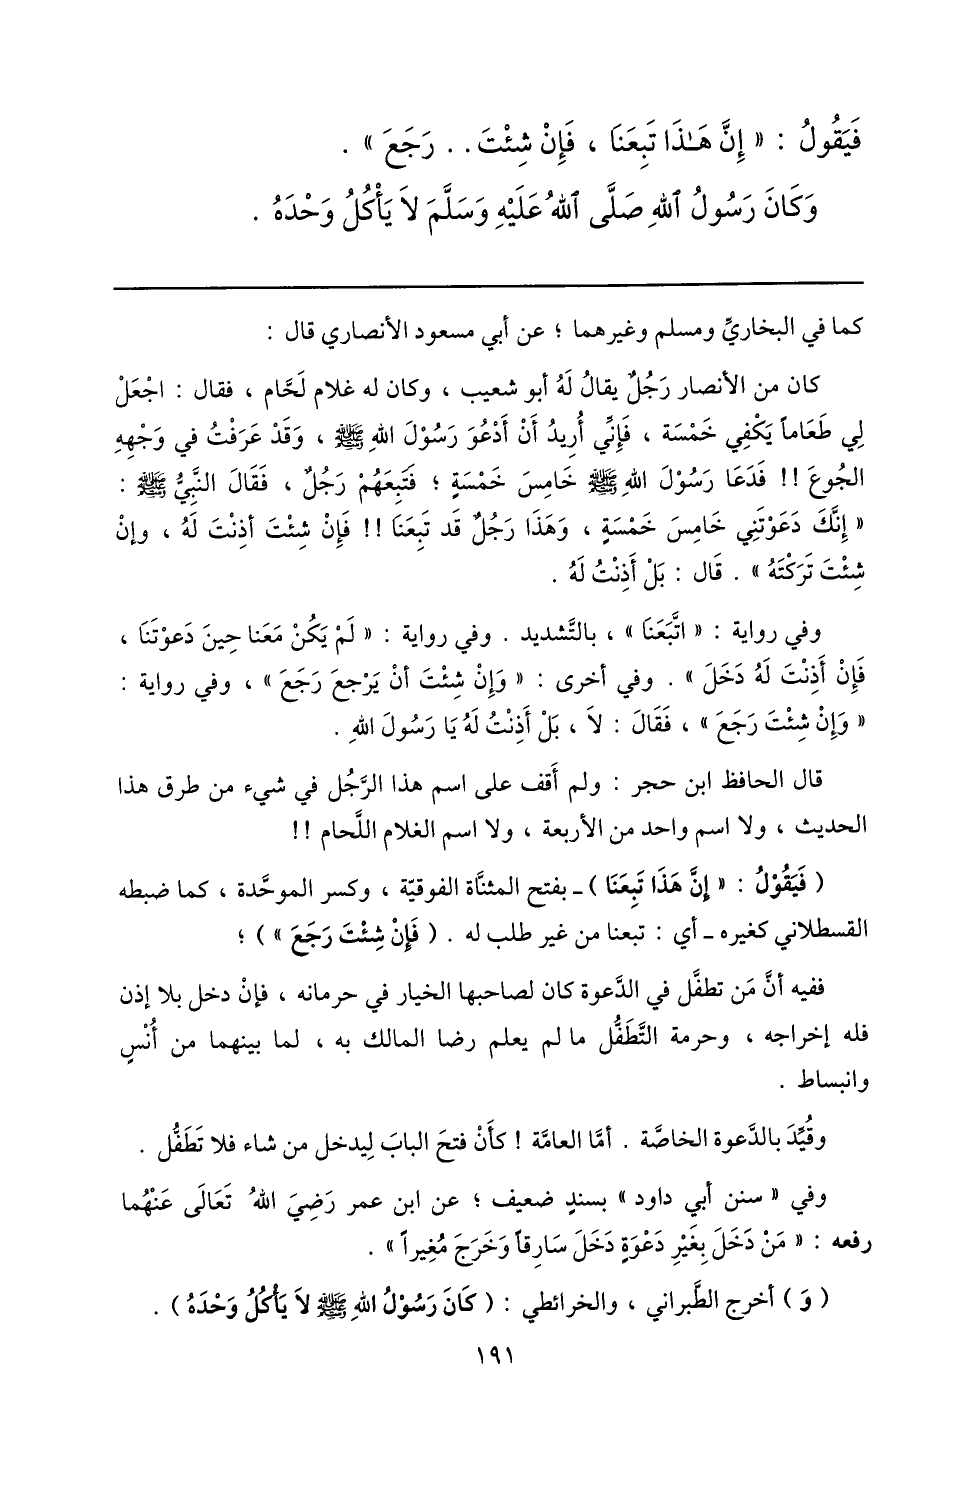 فَيَقُولُ : « إِنَّ هَـٰذَا تَبِعَنَا ، فَإِنْ شِئْتَ . . رَجَعَ » .
وَكَانَ رَسُولُ ٱللهِ صَلَّى ٱللهُ عَلَيْهِ وَسَلَّمَ لاَ يَأْكُلُ وَحْدَهُ .
كما في البخاريِّ ومسلم وغيرهما ؛ عن أبي مسعود الأنصاري قال :
كان من الأنصار رَجُلٌ يقالُ لَهُ أبو شعيب ، وكان له غلام لَحَّام ، فقال : اجْعَلْ
لِي طَعَاماً يَكْفِي خَمْسَة ، فَإِنِّي أُرِيدُ أَنْ أَدْعُوَ رَسُوْلَ اللهِ ﷺ ، وَقَدْ عَرَفْتُ في وَجْهِهِ
الجُوعَ !! فَدَعَا رَسُوْلَ اللهِ ﷺ خَامِسَ خَمْسَةٍ ؛ فَتَبِعَهُمْ رَجُلٌ ، فَقَالَ النَّبِيُّ ﷺ :
« إِنَّكَ دَعَوْتَنِي خَامِسَ خَمْسَةٍ ، وَهَذَا رَجُلٌ قَد تَبِعَنَا !! فَإِنْ شِئْتَ أذِنْتَ لَهُ ، وإنْ
شِئْتَ تَرَكْتَهُ » . قَال : بَلْ أَذِنْتُ لَهُ .
وفي رواية : « اتَّبَعَنَا » ، بالتَّشديد . وفي رواية : « لَمْ يَكُنْ مَعَنا حِينَ دَعوْتَنَا ،
فَإِنْ أَذِنْتَ لَهُ دَخَلَ » . وفي أخرى : « وَإِنْ شِئْتَ أنْ يَرْجعَ رَجَعَ » ، وفي رواية :
« وَإِنْ شِئْتَ رَجَعَ » ، فَقَالَ : لاَ ، بَلْ أَذِنْتُ لَهُ يَا رَسُولَ اللهِ .
قال الحافظ ابن حجر : ولم أَقف على اسم هذا الرَّجُل في شيء من طرق هذا
الحديث ، ولا اسم واحد من الأربعة ، ولا اسم الغلام اللَّحام !!
( فَيَقُوْلُ : « إِنَّ هَذَا تَبِعَنَا ) ـ بفتح المثنَّاة الفوقيّة ، وكسر الموحَّدة ، كما ضبطه
القسطلاني كغيره ـ أي : تبعنا من غير طلب له . ( فَإِنْ شِئْتَ رَجَعَ » ) ؛
ففيه أنَّ مَن تطفَّل في الدَّعوة كان لصاحبها الخيار في حرمانه ، فإنْ دخل بلا إذن
فله إخراجه ، وحرمة التَّطَفُّل ما لم يعلم رضا المالك به ، لما بينهما من أُنْسٍ
وانبساط .
وقُيِّدَ بالدَّعوة الخاصَّة . أمَّا العامَّة ! كأَنْ فتحَ البابَ لِيدخل من شاء فلا تَطَفُّل .
وفي « سنن أبي داود » بسندٍ ضعيف ؛ عن ابن عمر رَضِيَ اللهُ تَعَالَى عَنْهُما
رفعه : « مَنْ دَخَلَ بِغَيْرِ دَعْوَةٍ دَخَلَ سَارِقاً وَخَرَجَ مُغِيراً » .
( وَ ) أخرج الطَّبراني ، والخرائطي : ( كَانَ رَسُوْلُ اللهِ ﷺ لاَ يَأْكُلُ وَحْدَهُ ) .
١٩١